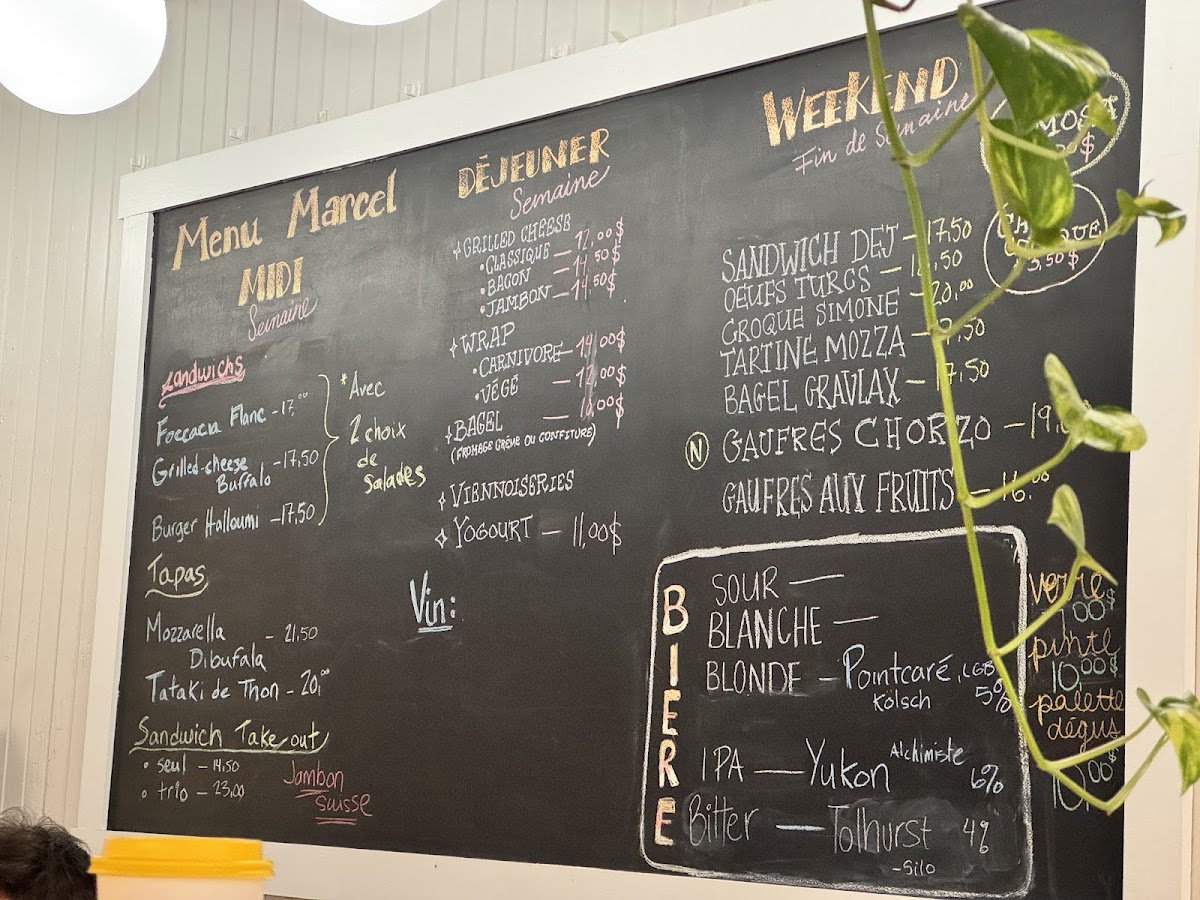 Menu Marcel
MIDI
Semaine
Sandwichs
Foccacia Flanc - 17,00
Grilled-cheese
Buffalo - 17,50
Burger Halloumi - 17,50
*Avec
2 choix
de
salades
Tapas
Mozzarella - 21,50
Dibufala
Tataki de Thon - 20,00
Sandwich Take out
• seul - 14,50
• trio - 23,00
Jambon
suisse
DÉJEUNER
Semaine
GRILLED CHEESE
• CLASSIQUE - 12,00$
• BACON - 14,50$
• JAMBON - 14,50$
WRAP
• CARNIVORE - 14,00$
• VÉGÉ
BAGEL
(FROMAGE CRÈME OU CONFITURE)
VIENNOISERIES
YOGOURT - 11,00$
Vin:
WEEKEND
Fin de Semaine
SANDWICH DEJ - 17,50
OEUFS TURCS
CROQUE SIMONE - 20,00
TARTINE MOZZA
BAGEL GRAVLAX
N GAUFRES CHORZO
GAUFRES AUX FRUITS - 16,00
BIERE
SOUR —
BLANCHE —
BLONDE - Pointcaré, LGB
Kölsch 5%
IPA — Yukon Alchimiste 6%
Bitter — Tolhurst 4%
- Silo
verre
pinte
10,00$
palette
dégus